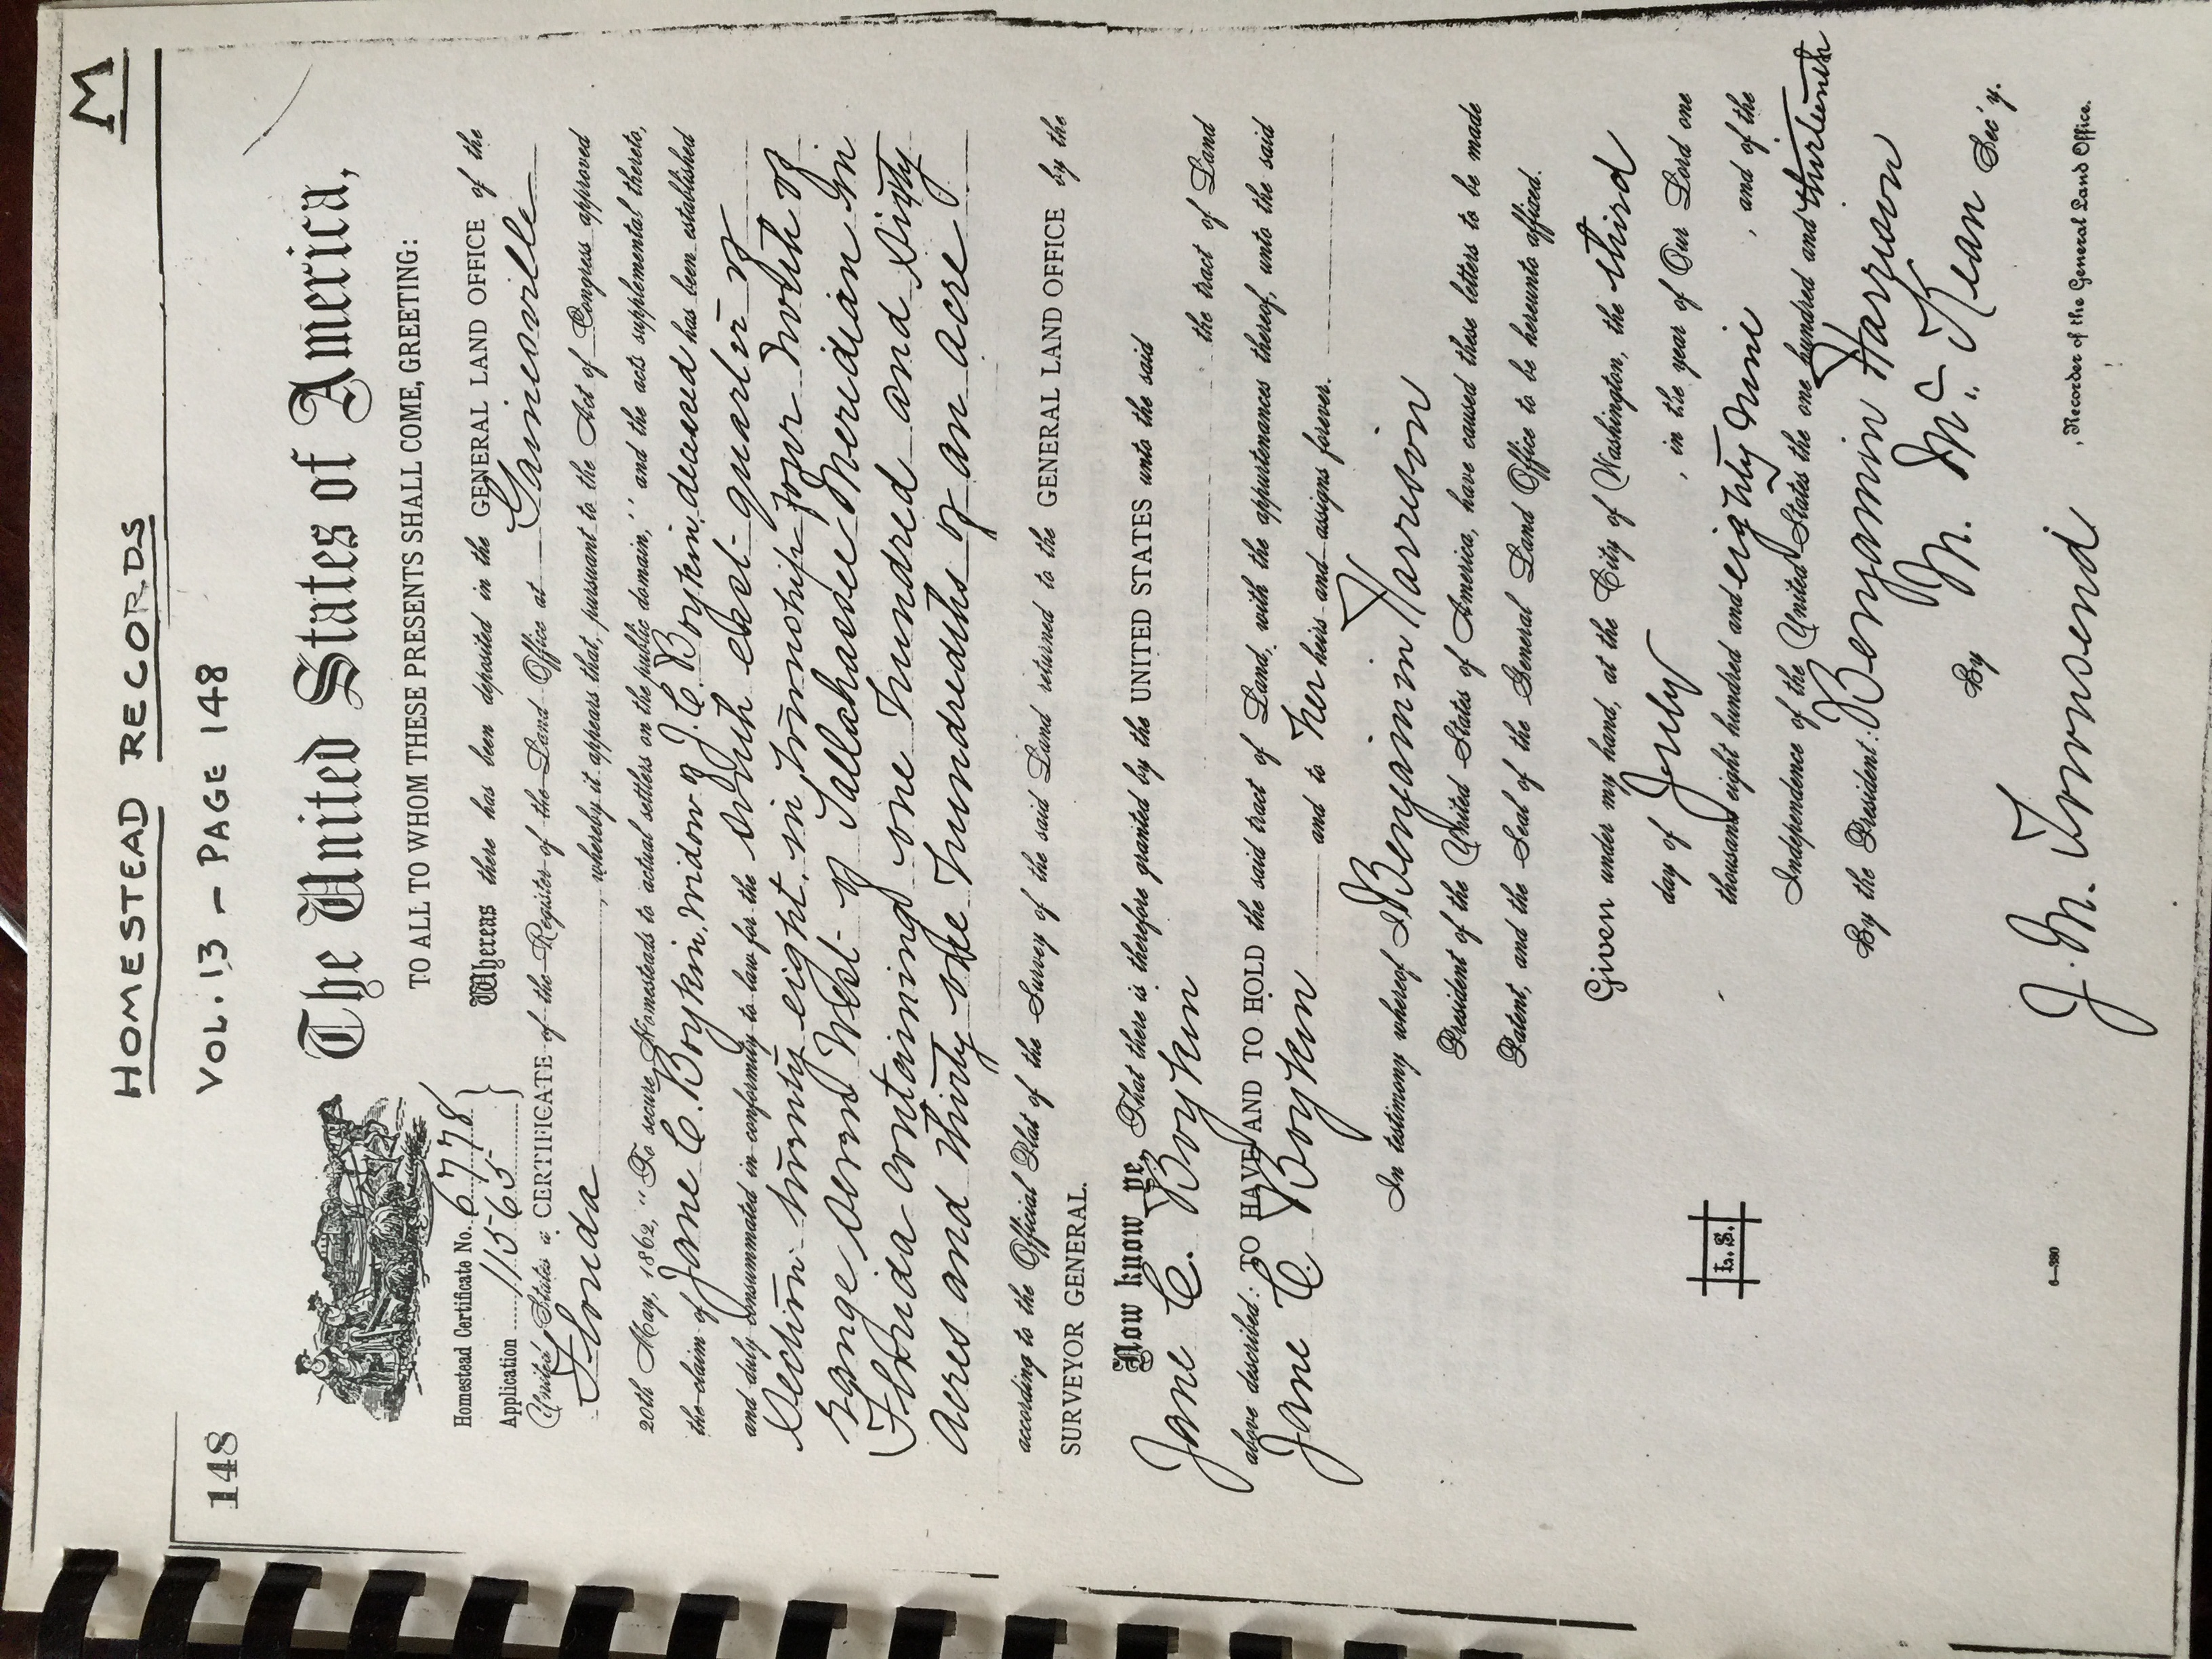 M
HOMESTEAD RECORDS
VOL. 13 - PAGE 148
148
The United States of America,
TO ALL TO WHOM THESE PRESENTS SHALL COME, GREETING:
Homestead Certificate No. 6778
Application 11565
Whereas there has been deposited in the GENERAL LAND OFFICE of the
United States a CERTIFICATE of the Register of the Land Office at Gainesville
Florida, whereby it appears that, pursuant to the Act of Congress approved
20th May, 1862, "To secure Homesteads to actual settlers on the public domain," and the acts supplemental thereto,
the claim of Jane C. Boykin, widow of J. C. Boykin, deceased has been established
and duly consummated in conformity to law for the south east quarter of
Section twenty eight, in Township four North of
range seven West of Tallahassee Meridian in
Florida containing one hundred and sixty
acres and thirty one hundredths of an acre
according to the Official Plat of the Survey of the said Land returned to the GENERAL LAND OFFICE by the
SURVEYOR GENERAL.
Now know ye, That there is therefore granted by the UNITED STATES unto the said
Jane C. Boykin the tract of Land
above described: TO HAVE AND TO HOLD the said tract of Land, with the appurtenances thereof, unto the said
Jane C. Boykin and to her heirs and assigns forever.
In testimony whereof I Benjamin Harrison
President of the United States of America, have caused these letters to be made
Patent, and the Seal of the General Land Office to be hereunto affixed.
Given under my hand, at the City of Washington, the third
day of July, in the year of Our Lord one
thousand eight hundred and eighty nine, and of the
Independence of the United States the one hundred and thirteenth
L. S.
By the President: Benjamin Harrison
By M. McKean Sec'y.
J. M. Townsend, Recorder of the General Land Office.
6—380